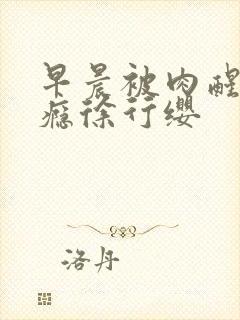 早晨被肉醒
瘾徐行缨
洛丹